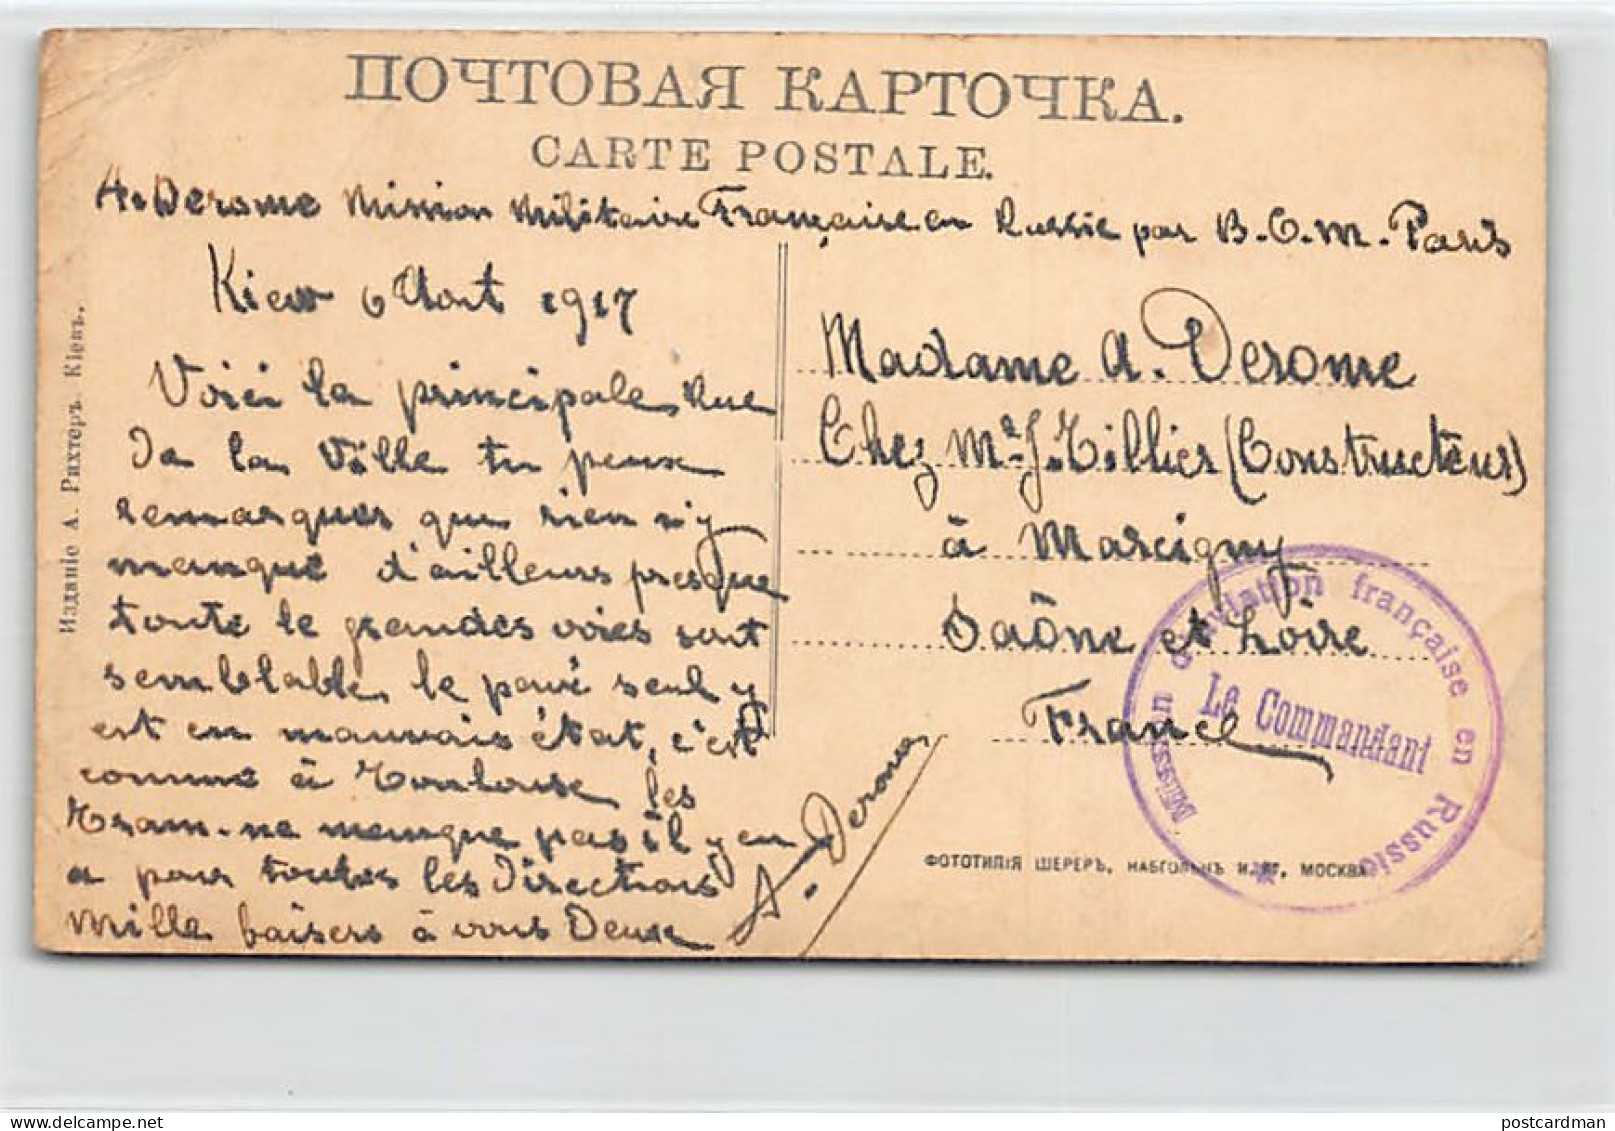 ПОЧТОВАЯ КАРТОЧКА.
CARTE POSTALE.
A. Derome Mission Militaire Française en Russie par B.C.M. Paris
Kiew 6 Aout 1917
Voici la principale rue
de la Ville tu peux
remarquer que rien n'y
manque d'ailleurs presque
toute le grandes voies sont
semblable le pavé seul y
est en mauvais état, c'est
comme à Toulouse les
tram ne manque pas il y en
a pour toutes les directions
Mille baisers à vous Deux
A. Derome
Madame A. Derome
Chez Mr J. Tillier (Constructeur)
à Marcigny
Saône et Loire
France
Mission d'aviation française en Russie
Le Commandant
ФОТОТИПІЯ ШЕРЕРЪ, НАБГОЛЬЦЪ И МОСКВА
Изданіе А. Рихтеръ. Кіевъ.
postcardman